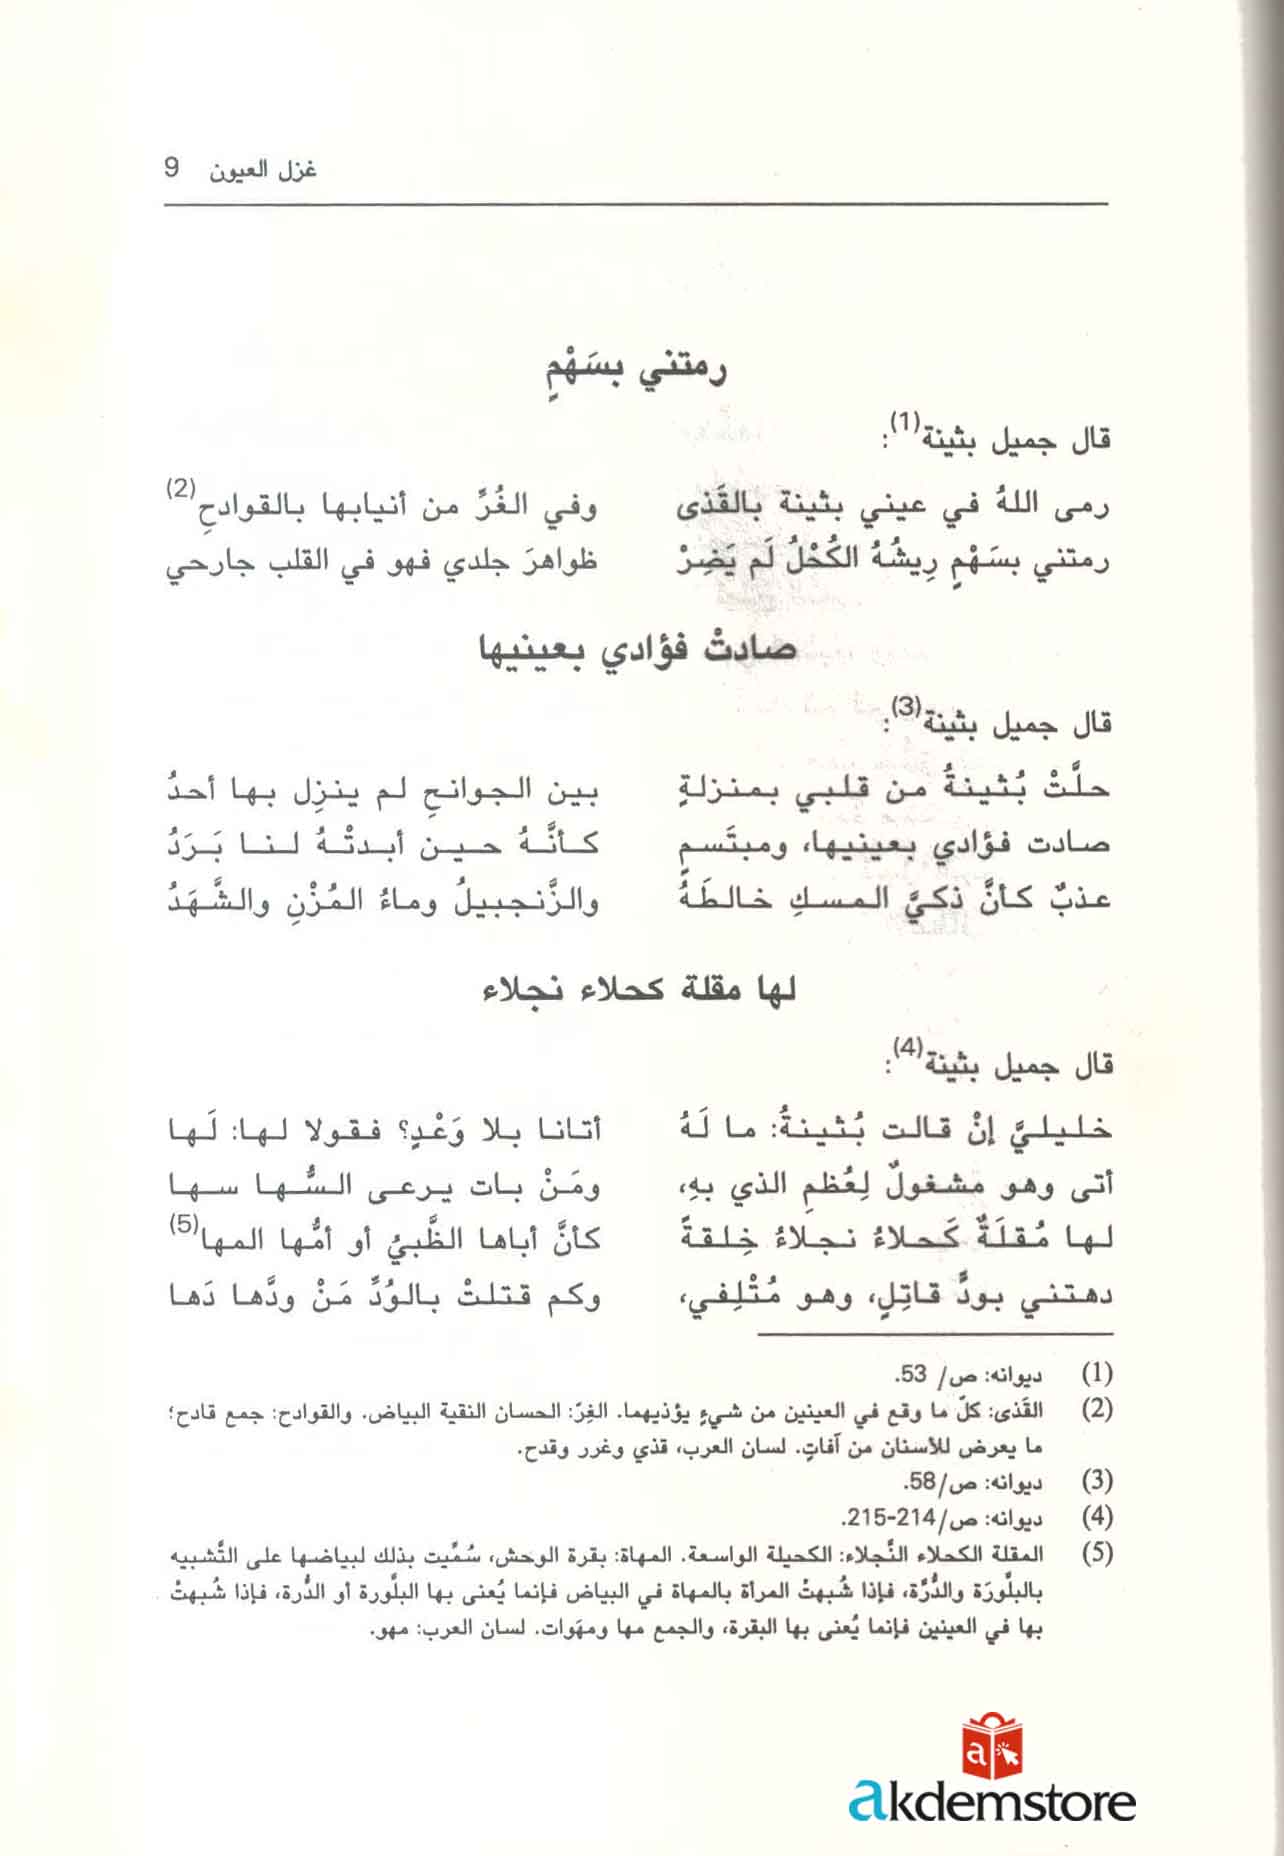 غزل العيون 9
رمتني بسَهْمٍ
قال جميل بثينة(1):
رمى اللهُ في عيني بثينة بالقَذى وفي الغُرِّ من أنيابها بالقوادحِ(2)
رمتني بسَهْمٍ رِيشُهُ الكُحْلُ لَم يَضِرْ ظواهرَ جلدي فهو في القلب جارحي
صادتْ فؤادي بعينيها
قال جميل بثينة(3):
حلَّتْ بُثينةُ من قلبي بمنزلةٍ بين الجوانحِ لم ينزِل بها أحدُ
صادت فؤادي بعينيها، ومبتَسمٍ كأنَّهُ حين أبدتْهُ لنا بَرَدُ
عذبٌ كأنَّ ذكيَّ المسكِ خالطَهُ والزَّنجبيلُ وماءُ المُزْنِ والشَّهَدُ
لها مقلة كحلاء نجلاء
قال جميل بثينة(4):
خليليَّ إنْ قالت بُثينةُ: ما لَهُ أتانا بلا وَعْدٍ؟ فقولا لها: لَها
أتى وهو مشغولٌ لِعُظمِ الذي بهِ، ومَنْ بات يرعى السُّها سها
لها مُقلَةٌ كَحلاءُ نجلاءُ خِلقةً كأنَّ أباها الظَّبيُ أو أمُّها المها(5)
دهتني بودِّ قاتِلٍ، وهو مُتْلِفي، وكم قتلتْ بالوُدِّ مَنْ ودَّها دَها
(1) ديوانه: ص/ 53.
(2) القَذى: كلّ ما وقع في العينين من شيءٍ يؤذيهما. الغِرّ: الحسان النقية البياض. والقوادح: جمع قادح؛
ما يعرض للأسنان من آفاتٍ. لسان العرب، قذي وغرر وقدح.
(3) ديوانه: ص/58.
(4) ديوانه: ص/214-215.
(5) المقلة الكحلاء النَّجلاء: الكحيلة الواسعة. المهاة: بقرة الوحش، سُمِّيت بذلك لبياضها على التَّشبيه
بالبلَّورَة والدُّرَّة، فإذا شُبهتْ المرأة بالمهاة في البياض فإنما يُعنى بها البلَّورة أو الدُّرة، فإذا شُبهتْ
بها في العينين فإنما يُعنى بها البقرة، والجمع مها ومهَوات. لسان العرب: مهو.
a
akdemstore